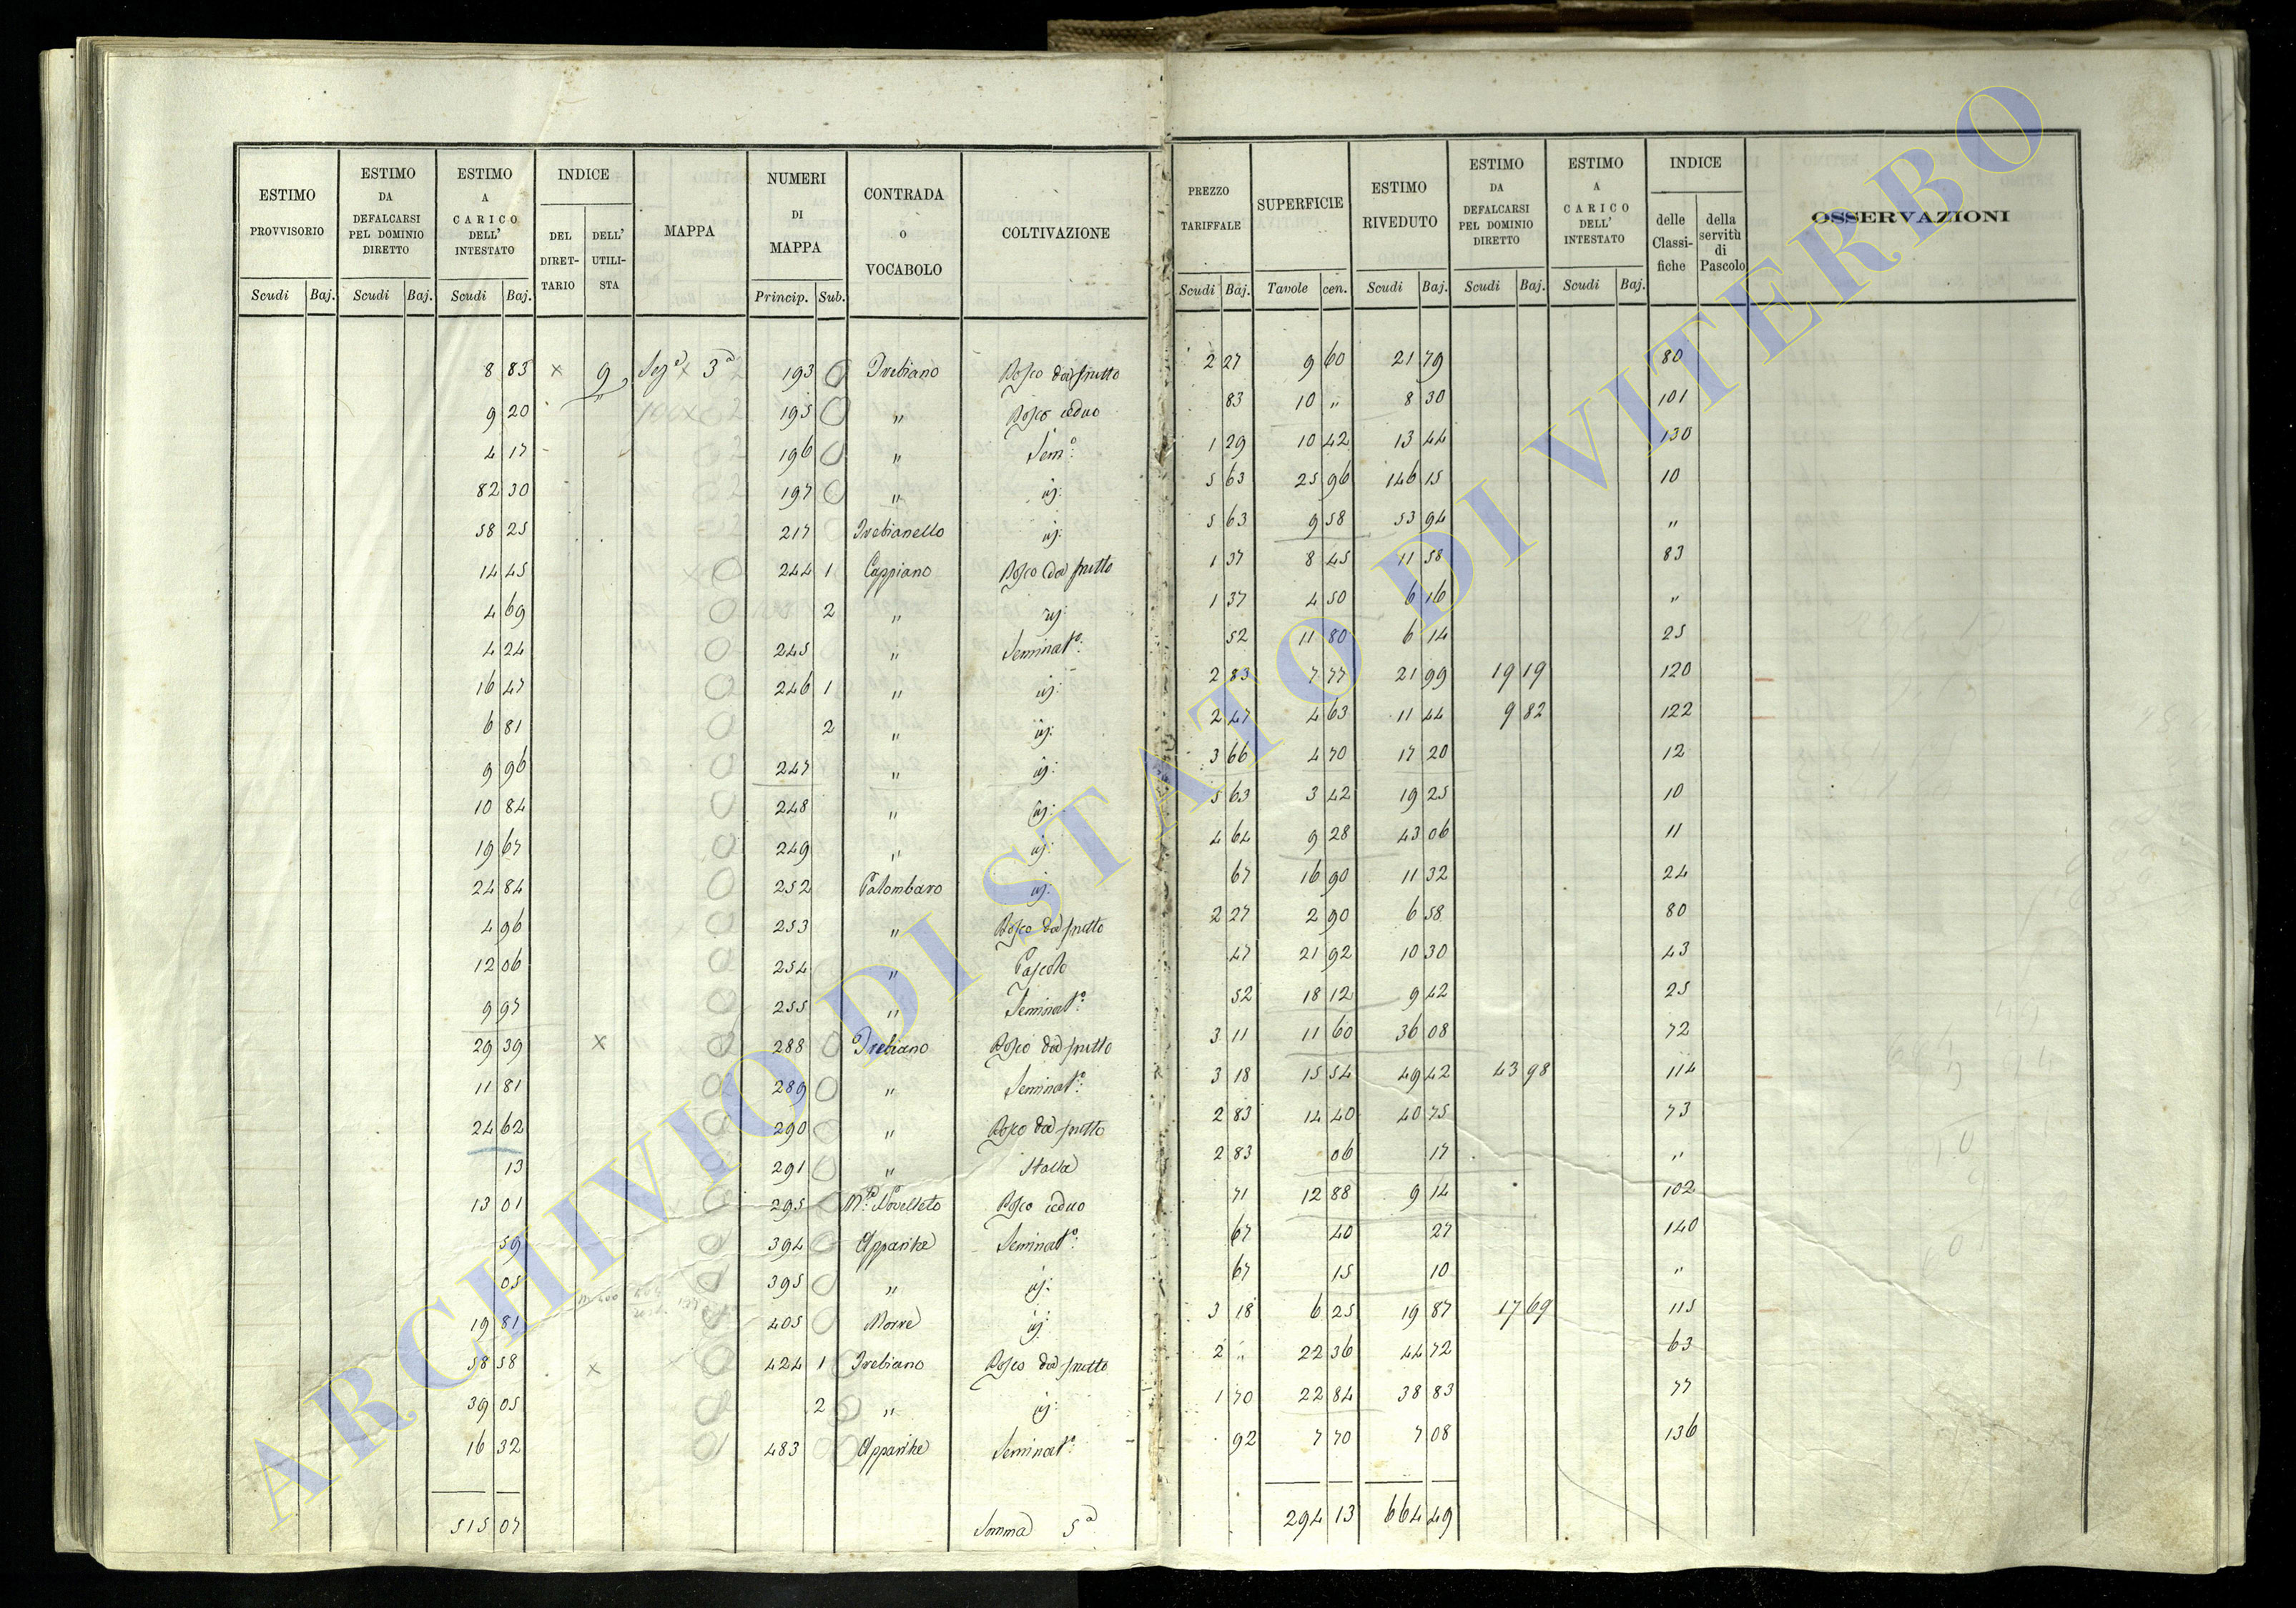 ESTIMO PROVVISORIO | ESTIMO DA DEFALCARSI PEL DOMINIO DIRETTO | ESTIMO A CARICO DELL' INTESTATO | INDICE DEL DIRETTARIO | DELL' UTILISTA | MAPPA | NUMERI DI MAPPA | CONTRADA o VOCABOLO | COLTIVAZIONE | PREZZO TARIFFALE | SUPERFICIE | ESTIMO RIVEDUTO | ESTIMO DA DEFALCARSI PEL DOMINIO DIRETTO | ESTIMO A CARICO DELL' INTESTATO | INDICE delle Classifiche | della servitù di Pascolo | OSSERVAZIONI
Scudi Baj. Scudi Baj. Scudi Baj. Princip. Sub. Scudi Baj. Tavole cen. Scudi Baj. Scudi Baj. Scudi Baj.
8 83 x 9 Segª 3ª 193 Trebiano Bosco da frutto 2 27 9 60 21 79 80
9 20 " 195 " Bosco ceduo 83 10 " 8 30 101
4 17 196 " Semº: 1 29 10 42 13 44 130
82 30 197 " id: 5 63 25 96 146 15 10
58 25 217 Trebianello id: 5 63 9 58 53 94 "
14 45 244 1 Cappiano Bosco da frutto 1 37 8 45 11 58 83
4 69 2 " id: 1 37 4 50 6 16 "
4 24 245 " Seminatº: 52 11 80 6 14 25
16 47 246 1 " id: 2 83 7 77 21 99 19 19 120
6 81 2 " id: 2 47 4 63 11 44 9 82 122
9 96 247 " id: 3 66 4 70 17 20 12
10 84 248 " id: 5 63 3 42 19 25 10
19 67 249 " id: 4 64 9 28 43 06 11
24 84 252 Palombaro id: 67 16 90 11 32 24
4 96 253 " Bosco da frutto 2 27 2 90 6 58 80
12 06 254 " Pascolo 47 21 92 10 30 43
9 97 255 " Seminatº: 52 18 12 9 42 25
29 39 x 288 Trebiano Bosco da frutto 3 11 11 60 36 08 72
11 81 289 " Seminatº: 3 18 15 54 49 42 43 98 114
24 62 290 " Bosco da frutto 2 83 14 40 40 75 73
13 291 " Stalla 2 83 06 17 "
13 01 295 Bosco ceduo 71 12 88 9 14 102
59 394 Apparite Seminatº: 67 40 27 140
05 395 " id: 67 15 10 "
19 81 405 id: 3 18 6 25 19 87 17 69 115
58 58 x 424 1 Trebiano Bosco da frutto 2 " 22 36 44 72 63
39 05 2 " id: 1 70 22 84 38 83 77
16 32 483 Apparite Seminatº: 92 7 70 7 08 136
515 07 Somma 5ª 294 13 664 49
ARCHIVIO DI STATO DI VITERBO